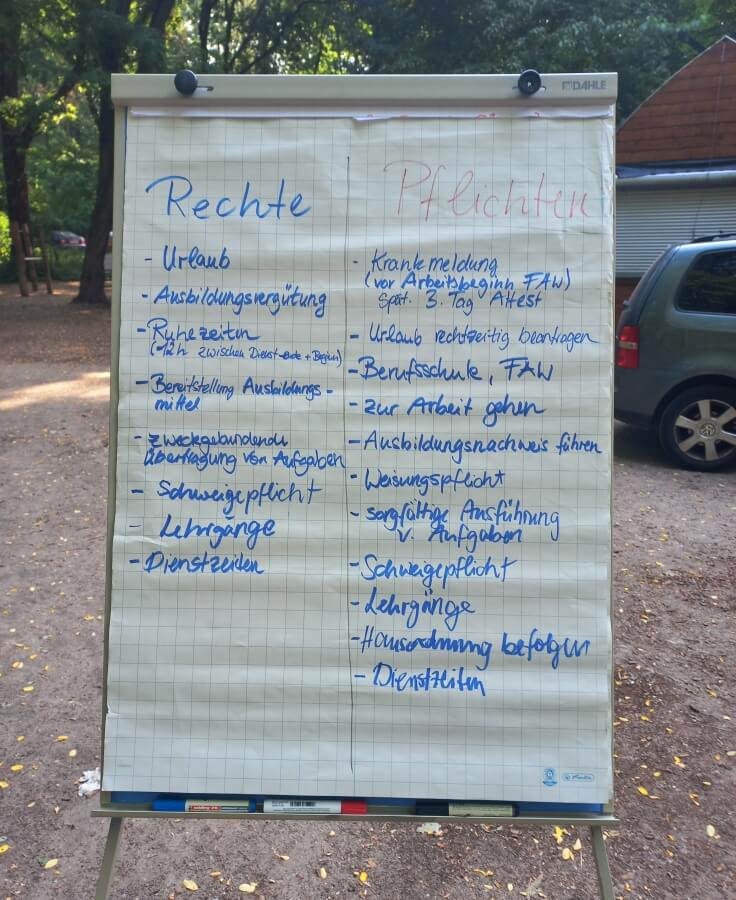 DAHLE
Rechte
- Urlaub
- Ausbildungsvergütung
- Ruhezeiten
(~12h zwischen Dienst-ende + Beginn)
- Bereitstellung Ausbildungs-
mittel
- zweckgebundende
Übertragung von Aufgaben
- Schweigepflicht
- Lehrgänge
- Dienstzeiten
Pflichten
- Krankmeldung
(vor Arbeitsbeginn FAW)
Spät. 3. Tag Attest
- Urlaub rechtzeitig beantragen
- Berufsschule, FAW
- zur Arbeit gehen
- Ausbildungsnachweis führen
- Weisungspflicht
- sorgfältige Ausführung
v. Aufgaben
- Schweigepflicht
- Lehrgänge
- Hausordnung befolgen
- Dienstzeiten